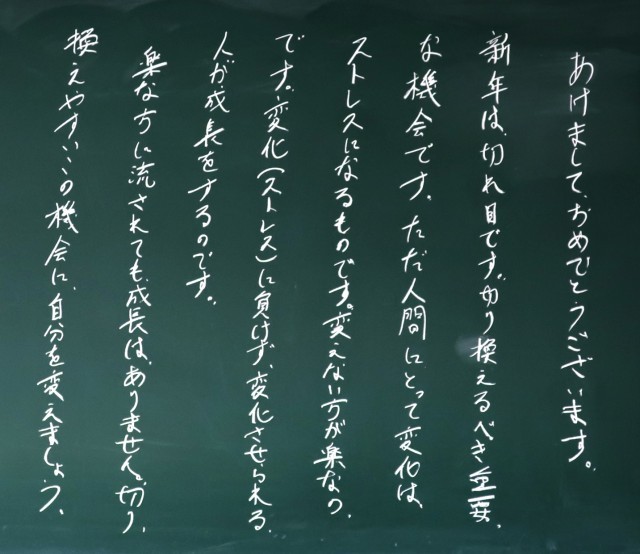 あけまして、おめでとうございます。
新年は、切れ目です。切り換えるべき重要、
な機会です。ただ人間にとって変化は、
ストレスになるものです。変えない方が楽なの、
です。変化(ストレス)に負けず、変化させられる、
人が成長をするのです。
楽な方に流されても成長は、ありません。切り、
換えやすいこの機会に、自分を変えましょう、